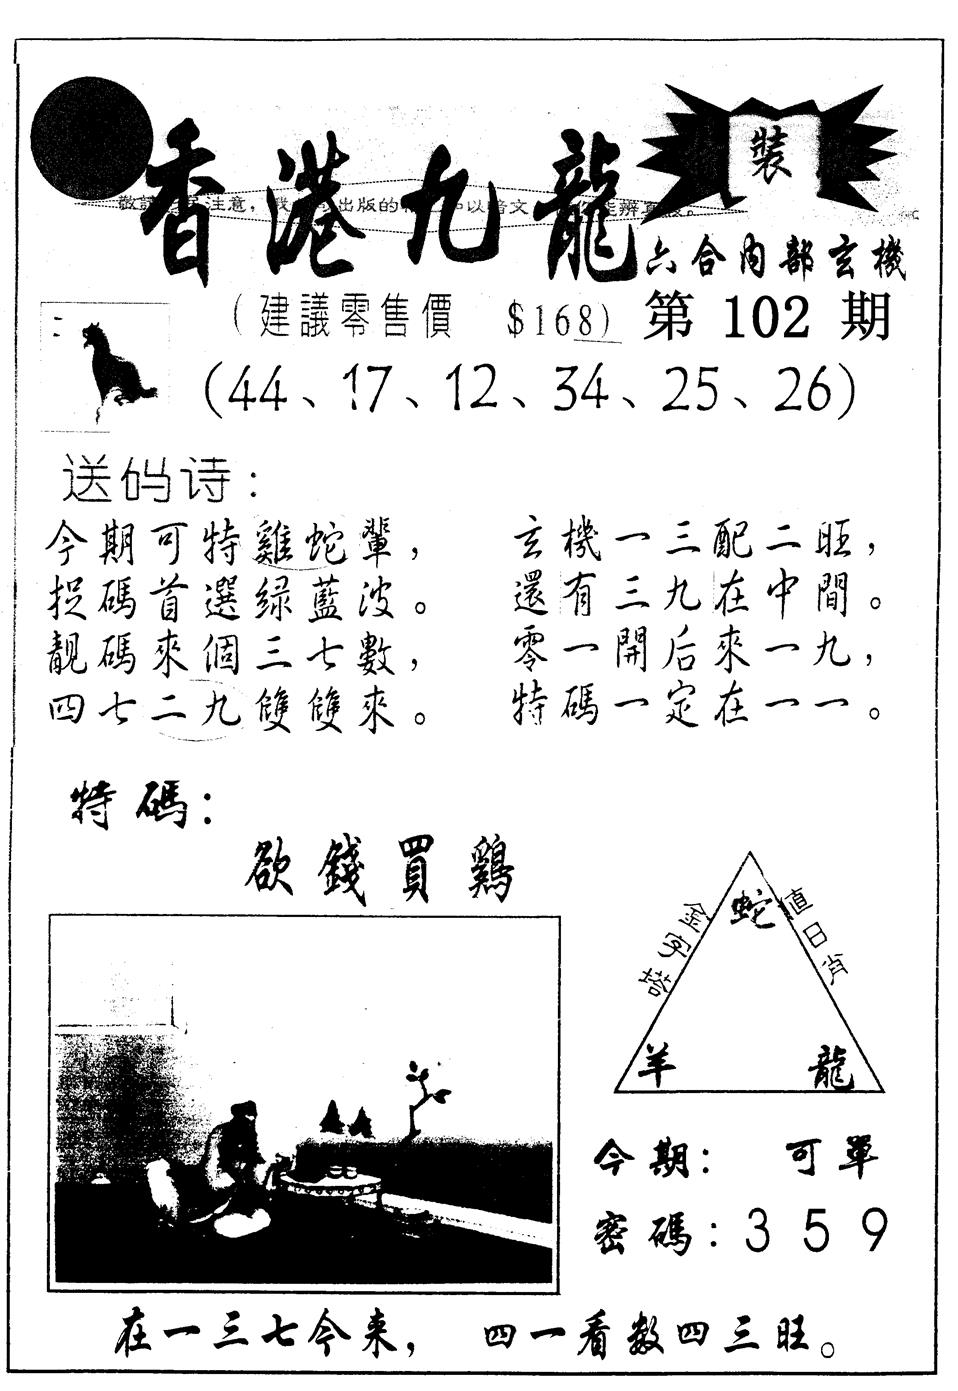 裝
香港九龍
六合内部玄機
(建議零售價 $168) 第 102 期
(44、17、12、34、25、26)
送码诗:
今期可特雞蛇輩,
捉碼首選绿藍波。
靓碼來個三七數,
四七二九雙雙來。
玄機一三配二旺,
還有三九在中間。
零一開后來一九,
特碼一定在一一。
特碼:
欲錢買鷄
金字塔
蛇
值日肖
羊
龍
今期: 可單
密碼: 3 5 9
在一三七今来, 四一看数四三旺。